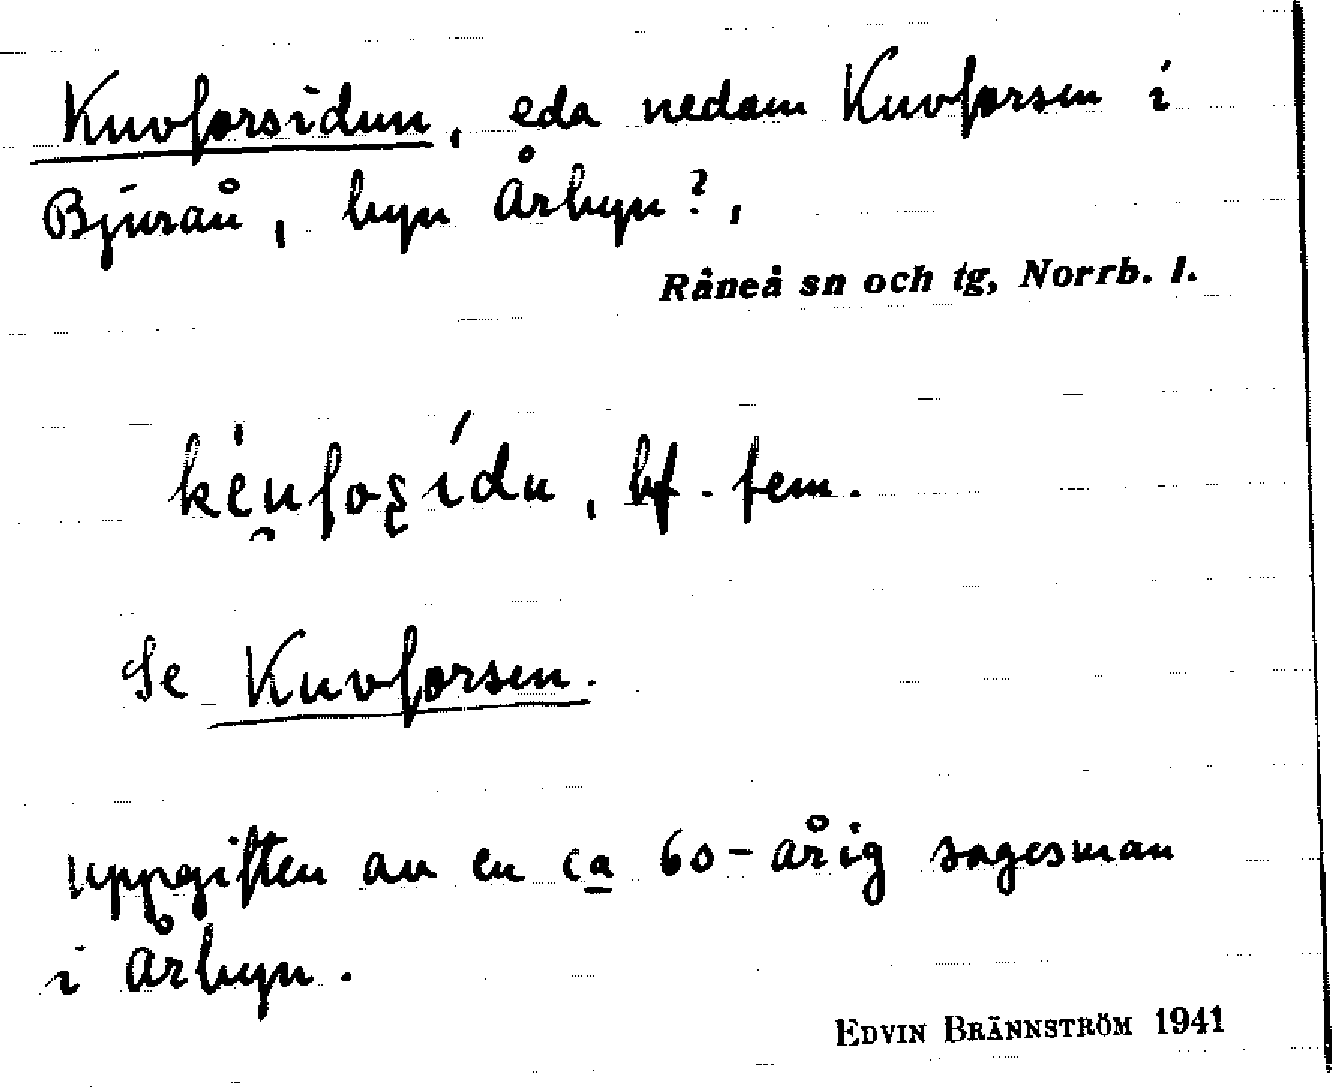 Kuvforsidun, eda nedom Kuvforsen i
Bjuraå, byn Årbyn?,
Råneå sn och tg, Norrb. l.
bf. fem.
Se Kuvforsen.
uppgiften av en ca 60-årig sagesman
i Årbyn.
EDVIN BRÄNNSTRÖM 1941